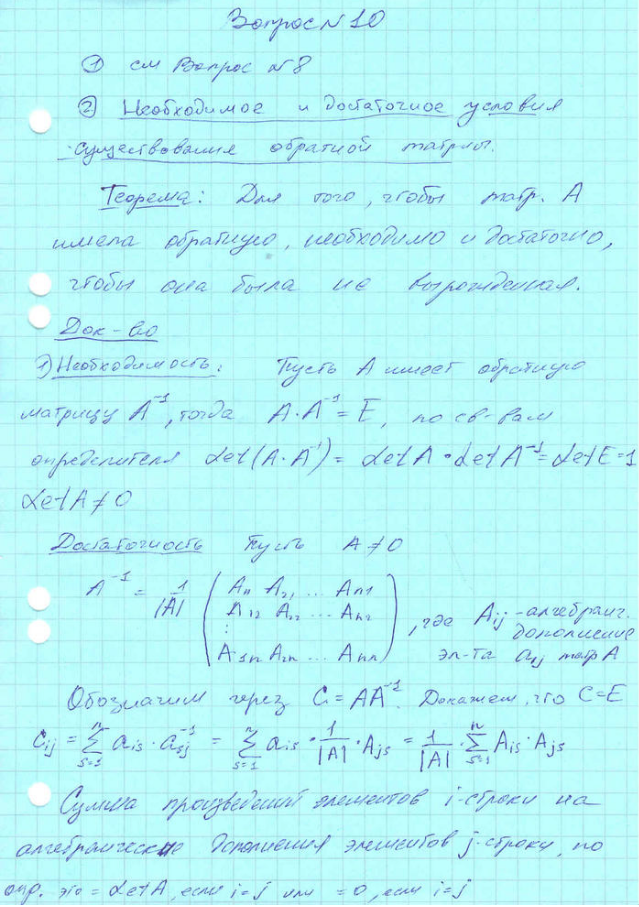 Вопрос №10
① см Вопрос №8
② Необходимое и достаточное условия
существования обратной матрицы.
Теорема: Для того, чтобы матр. A
имела обратную, необходимо и достаточно,
чтобы она была не вырожденная.
Док-во
1) Необходимость: Пусть A имеет обратную
матрицу A⁻¹, тогда A·A⁻¹ = E, по св-вам
определителя det(A·A⁻¹) = det A · det A⁻¹ = det E = 1
det A ≠ 0
Достаточность Пусть A ≠ 0
A⁻¹ = 1/|A| ( A₁₁ A₂₁ ... Aₙ₁
A₁₂ A₂₂ ... Aₙ₂
⋮
A₁ₙ A₂ₙ ... Aₙₙ ) , где Aᵢⱼ - алгебраич.
дополнение
эл-та aᵢⱼ матр A
Обозначим через C = AA⁻¹. Докажем, что C = E
cᵢⱼ = ∑ₛ₌₁ⁿ aᵢₛ · aₛⱼ⁻¹ = ∑ₛ₌₁ⁿ aᵢₛ · 1/|A| · Aⱼₛ = 1/|A| · ∑ₛ₌₁ⁿ Aᵢₛ · Aⱼₛ
Сумма произведений элементов i-строки на
алгебраические дополнения элементов j-строки, по
опр. это = det A, если i = j или = 0, если i = j